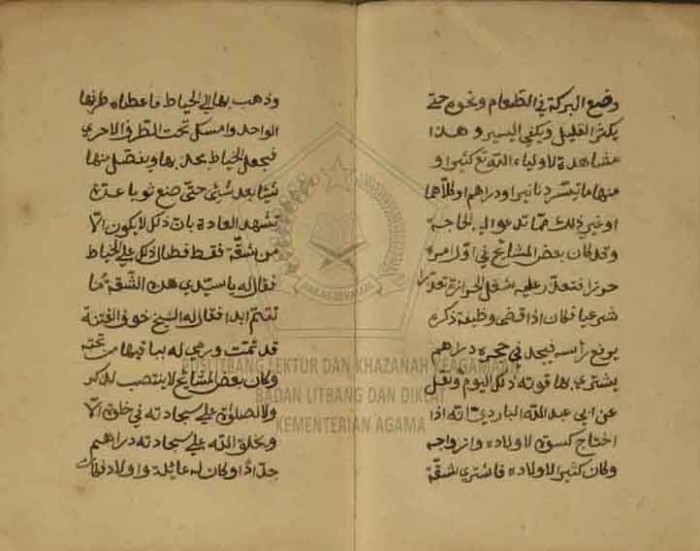 وضع البركة في الطعام ونحوه حتى
يكثر القليل ويكفي اليسير وهذا
مشاهدة لاولياء الله تع كثيرا و
منها ما يتيسر دنانير او دراهم او كلاهما
او غير ذلك مما تدعوا اليه الحاجة
وقد كان بعض المشايخ في اول امره
خرازا فتعذر عليه شغل الخرازة تعذرا
شرعيا فكان اذا قضى وظيفة ذكره
يرفع راسه فيجد في حجره دراهم
يشتري بها قوته ذلك اليوم ونقل
عن ابي عبد الله البارديّ انه اذا
احتاج كسوة لاولاده وازواجه
وكان كثير الاولاد فاشترى شقة
وذهب بها الى الخياط فاعطاه طرفها
الواحد وامسك تحت الطرف الاخرى
فيجعل الخياط يجلد بها ويفصل منها
شيئا بعد شيئ حتى صنع ثوبا عدة
تشهد العادة بان ذلك لا يكون الا
من شقة فقط فطال ذلك على الخياط
فقال له يا سيدي هذه الشقة ما
تتم ابدا فقال له الشيخ خوف الفتنة
قد تمت ورمى له بباقيها من تحته
وكان بعض المشايخ لا ينتصب للذكر
ولا لصلوة على سجادته في خلوة الا
ويخلق الله على سجادته دراهم
جدادا وكان له عائلة واولاد
PUSLITBANG LEKTUR DAN KHAZANAH KEAGAMAAN
BADAN LITBANG DAN DIKLAT
KEMENTERIAN AGAMA